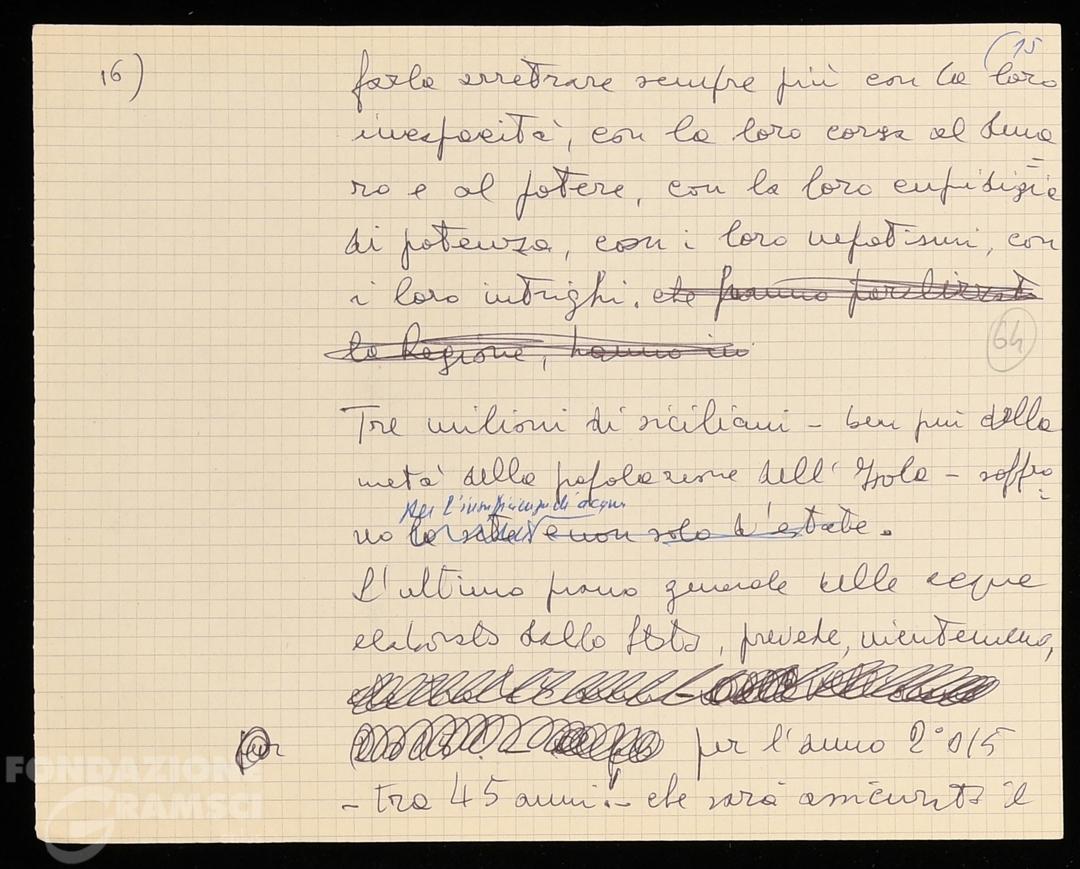 16)
(15
farla arretrare sempre più con la loro
incapacità, con la loro corsa al dena
ro e al potere, con la loro cupidigia
di potenza, con i loro nepotismi, con
i loro intrighi. che hanno paralizzato
la Regione, hanno in
64
Tre milioni di siciliani – ben più della
metà della popolazione dell'Isola – soffro
per l'insufficienza di acqua
no la sete e non solo d'estate.
L'ultimo piano generale delle acque
elaborato dallo Stato, prevede, nientemeno,
per l'anno 2°015
– tra 45 anni! – che sarà assicurato il
FONDAZIONE
GRAMSCI